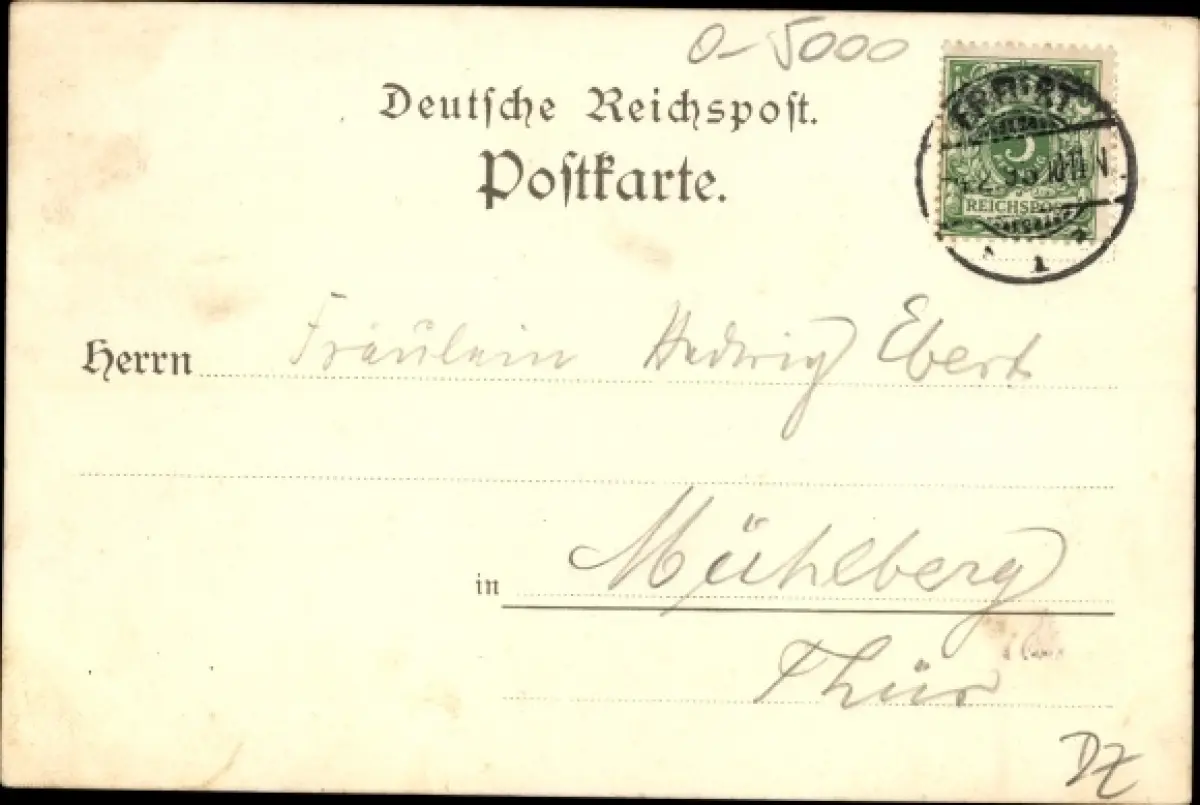 0-5000
Deutsche Reichspost.
Postkarte.
ERFURT
5
REICHSPOST
10-11 N
1
Herrn Fräulein Hedwig Ebert
in Mühlberg
Thür
DZ